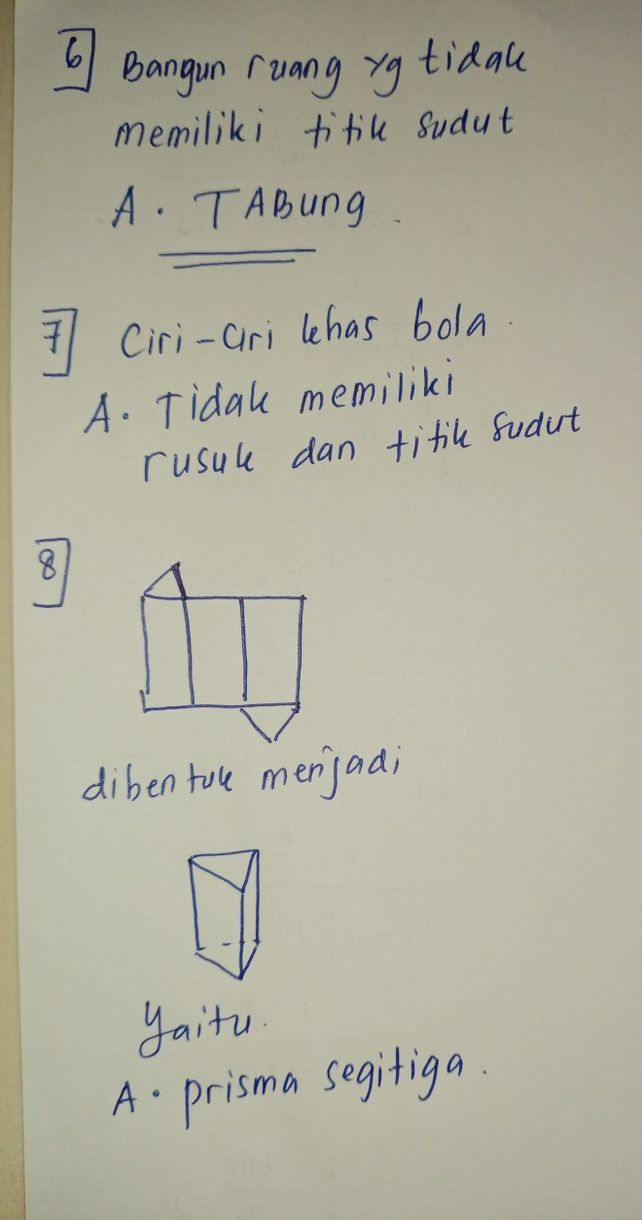 6 Bangun ruang yg tidak
memiliki titik sudut
A. TABung.
7 Ciri-Ciri khas bola.
A. Tidak memiliki
rusuk dan titik sudut
8
dibentuk menjadi
Yaitu.
A. prisma segitiga.